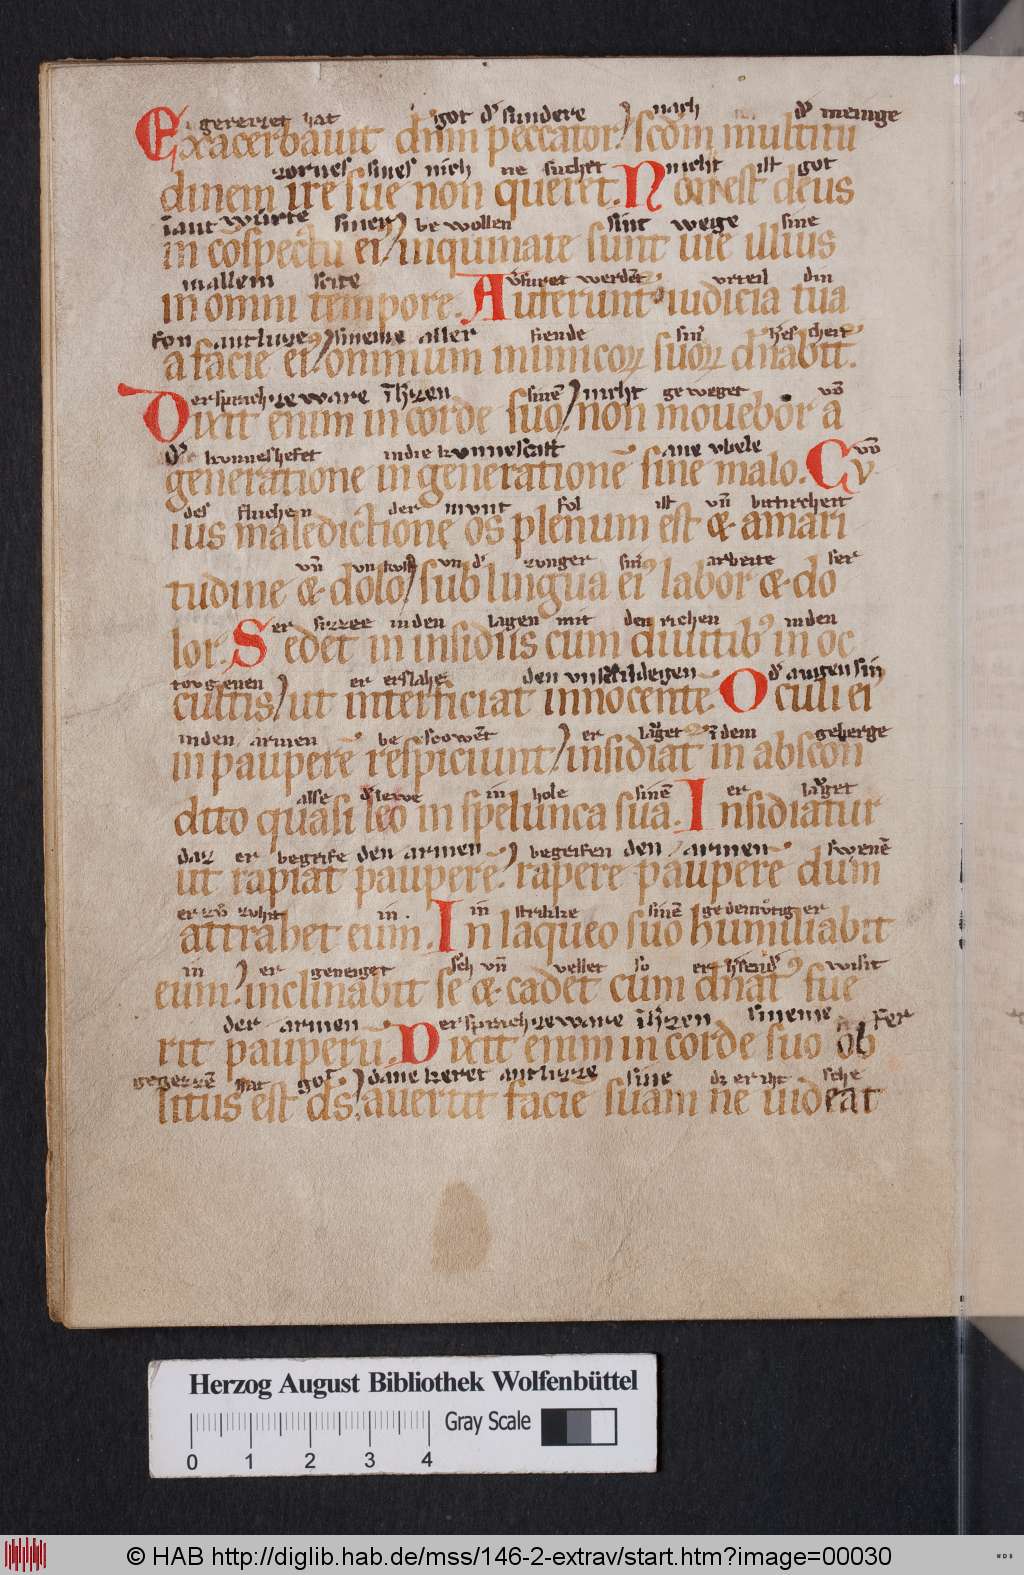 gereriet hat got dˢ sundere nach dˢ menige
Exacerbauit dnm peccator: scdm multitu
zornes sines nich ne suchet nicht ist got
dinem ire sue non queret. Non est deus
wůrte siner be wollen sint wege sine
in cōspectu ei inquinate sunt uie illius
in allem scite werdēt vrteil din
in omni tempore. Auferunt iudicia tua
fon antluzes sineme aller fiende sinˢ
a facie eiꝰ omnium inimicoꝝ suoꝝ dn̄abit.
er sprach zeware sinē nicht geweget vō
Dixit enim in corde suo: non mouebor a
dˢ kunneshefet in die kunnescaft ane vbele vō
generatione in generationē sine malo. Cu
des fluchen der munt fol ist vn̄ bittircheit
ius maledictione os plenum est & amari
vn̄ vn̄ dˢ zunger sinˢ arbeite ser
tudine & dolo: sub lingua eiꝰ labor & do
er sizzee in den lagen mit den richen in den
lor. Sedet in insidiis cum diuitibꝰ in oc
tovgenen er erslahe den unsculdegen dˢ augen sin
cultis: ut interficiat innocentē. Oculi ei
in den armen er in dem geberge
in pauperē respiciunt: insidiat in abscon
alse dˢ lewe in hole sinē er laget
dito quasi leo in spelunca sua. Insidiatur
daz er begrife den armen begrifen den armen swenē
ut rapiat pauperē: rapere pauperē dum
er zů zuhit in. in strikke sinē gedemůtiger
attrahet eum. In laqueo suo humiliabit
in er geneiget sich vn̄ vellet so er wisit
eum: inclinabit se & cadet cum dn̄atꝰ fue
der armen er sprach zeware sineme fer
rit pauperū. Dixit enim in corde suo ob
gegezzē hat got dane keret antluzze sine dz er iht sehe
litus est ds̄: auertit faciē suam ne uideat
Herzog August Bibliothek Wolfenbüttel
Gray Scale
0 1 2 3 4
© HAB http://diglib.hab.de/mss/146-2-extrav/start.htm?image=00030
WDB